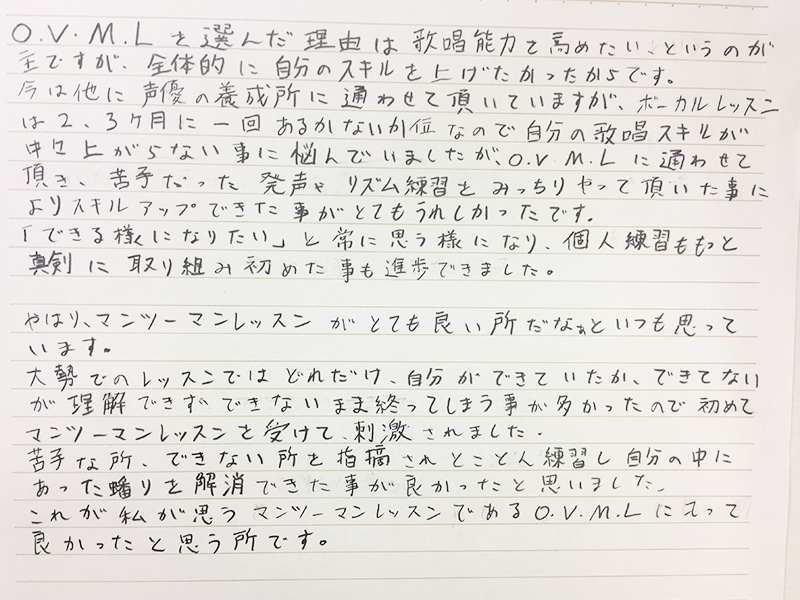 O.V.M.Lを選んだ理由は歌唱能力を高めたい、というのが
主ですが、全体的に自分のスキルを上げたかったからです。
今は他に声優の養成所に通わせて頂いていますが、ボーカルレッスン
は2、3ヶ月に一回あるかないか位なので自分の歌唱スキルが
中々上がらない事に悩んでいましたが、O.V.M.Lに通わせて
頂き、苦手だった発声やリズム練習をみっちりやって頂いた事に
よりスキルアップできた事がとてもうれしかったです。
「できる様になりたい」と常に思う様になり、個人練習ももっと
真剣に取り組み初めた事も進歩できました。
やはり、マンツーマンレッスンがとても良い所だなぁといつも思って
います。
大勢でのレッスンではどれだけ、自分ができていたか、できてない
が理解できずできないまま終ってしまう事が多かったので初めて
マンツーマンレッスンを受けて、刺激されました。
苦手な所、できない所を指摘されとことん練習し自分の中に
あった蟠りを解消できた事が良かったと思いました。
これが私が思うマンツーマンレッスンであるO.V.M.Lに入って
良かったと思う所です。